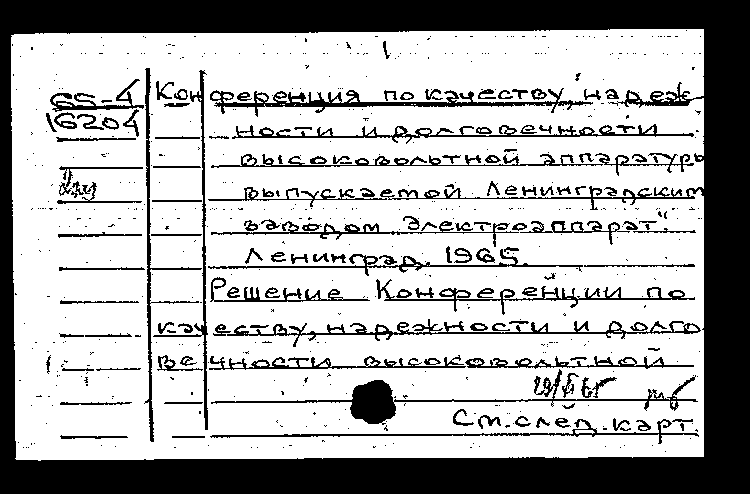 65-4
16204
Конференция по качеству, надеж
ности и долговечности
высоковольтной аппаратуры
выпускаемой Ленинградским
заводом "Электроаппарат".
Ленинград. 1965.
Решение Конференции по
качеству, надежности и долго
вечности высоковольтной
См. след. карт.